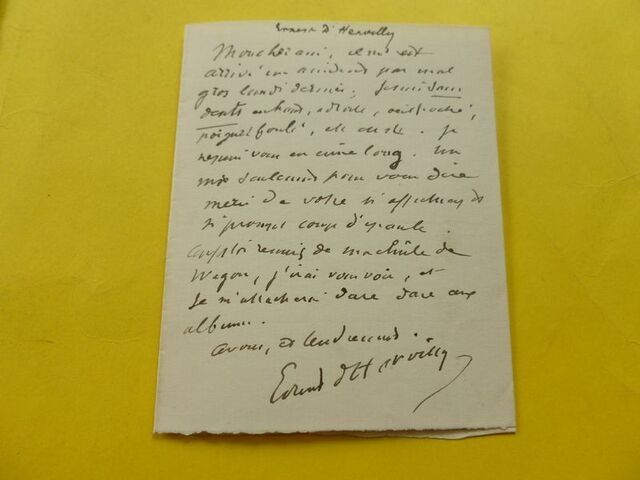 Ernest d'Hervilly
Mon cher ami, il m'est
arrivé un accident pas mal
gros lundi dernier. Je suis sans
dents en haut, à droite, œil poché,
poignet foulé, etc.
je
vous en écrire long. Un
mot seulement pour vous dire
merci de votre si affectueux et
si prompt coup d'épaule.
remis de ma chûte de
Wagon, j'irai vous voir, et
je m'attacherai dare dare aux
albums.
à vous, et tendrement.
Ernest d'Hervilly